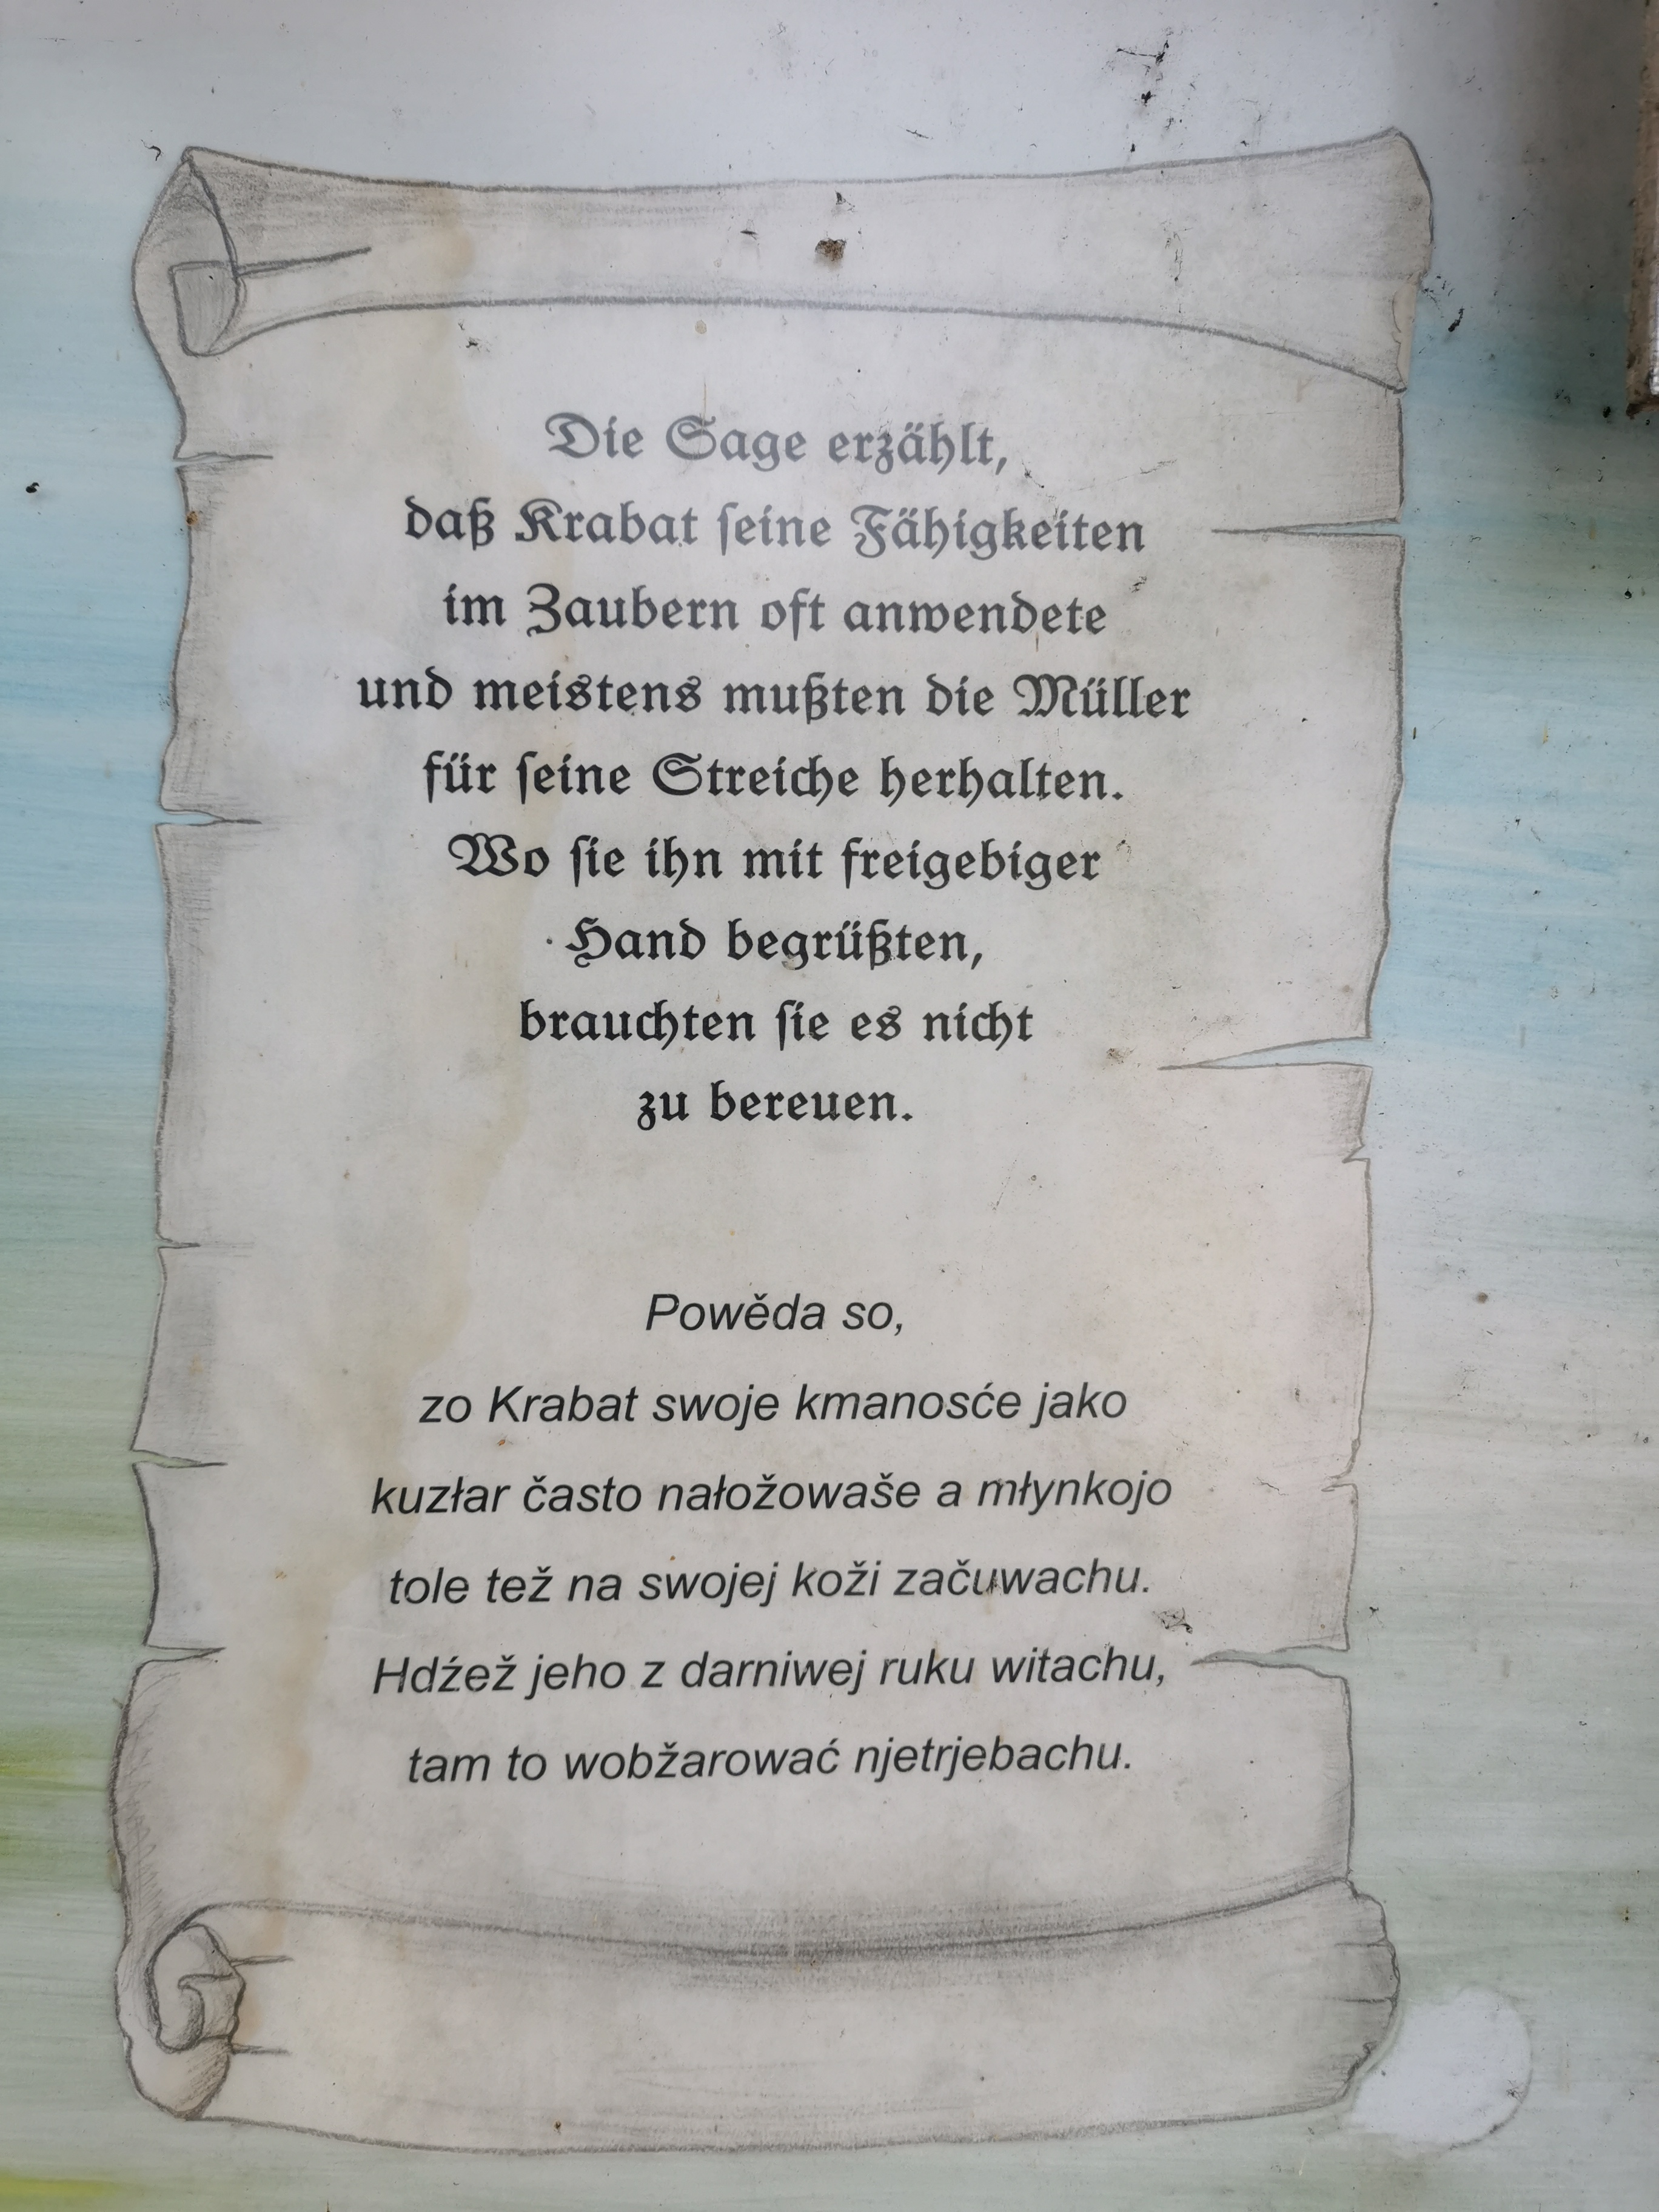 Die Sage erzählt,
daß Krabat ſeine Fähigkeiten
im Zaubern oft anwendete
und meistens mußten die Müller
für ſeine Streiche herhalten.
Wo ſie ihn mit freigebiger
Hand begrüßten,
brauchten ſie es nicht
zu bereuen.
Powěda so,
zo Krabat swoje kmanosće jako
kuzłar často nałožowaše a młynkojo
tole tež na swojej koži začuwachu.
Hdźež jeho z darniwej ruku witachu,
tam to wobžarować njetrjebachu.